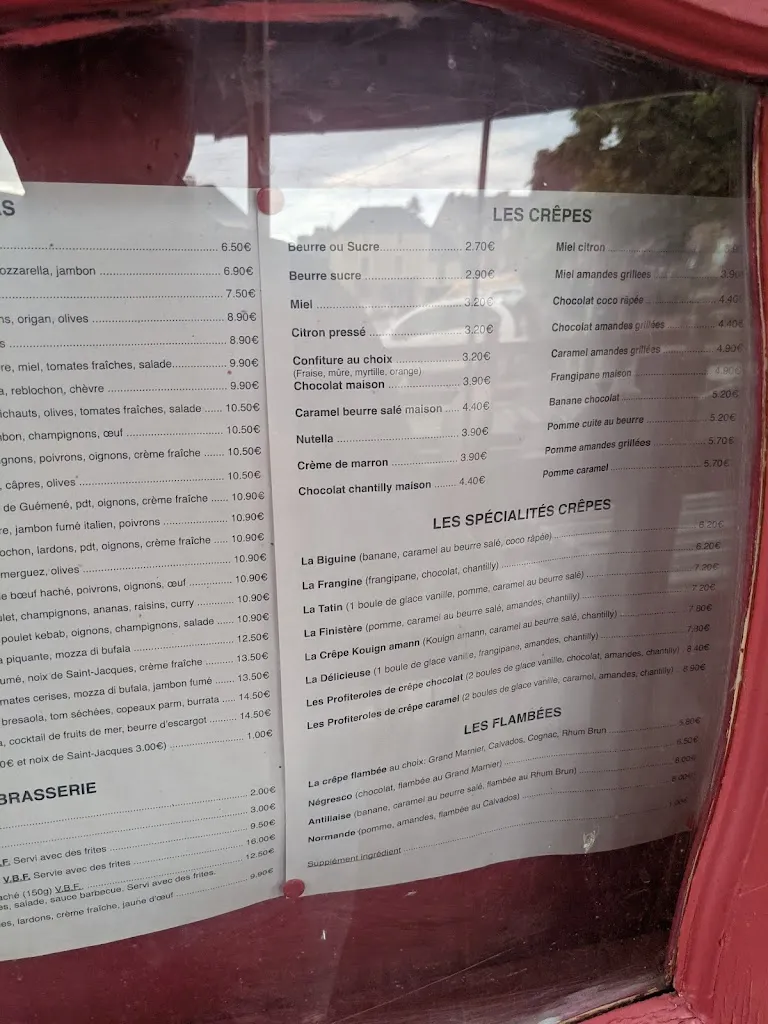 6.50€
ozzarella, jambon 6.90€
7.50€
ns, origan, olives 8.90€
8.90€
re, miel, tomates fraîches, salade 9.90€
a, reblochon, chèvre 9.90€
ichauts, olives, tomates fraîches, salade 10.50€
nbon, champignons, œuf 10.50€
gnons, poivrons, oignons, crème fraîche 10.50€
, câpres, olives 10.50€
de Guémené, pdt, oignons, crème fraîche 10.90€
re, jambon fumé italien, poivrons 10.90€
ochon, lardons, pdt, oignons, crème fraîche 10.90€
merguez, olives 10.90€
e bœuf haché, poivrons, oignons, œuf 10.90€
ulet, champignons, ananas, raisins, curry 10.90€
poulet kebab, oignons, champignons, salade 10.90€
a piquante, mozza di bufala 12.50€
umé, noix de Saint-Jacques, crème fraîche 13.50€
mates cerises, mozza di bufala, jambon fumé 13.50€
bresaola, tom séchées, copeaux parm, burrata 14.50€
a, cocktail de fruits de mer, beurre d'escargot 14.50€
0€ et noix de Saint-Jacques 3.00€) 1.00€
BRASSERIE
2.00€
3.00€
.F. Servi avec des frites 9.50€
V.B.F. Servie avec des frites 16.00€
aché (150g) V.B.F. 12.50€
es, salade, sauce barbecue. Servi avec des frites.
es, lardons, crème fraîche, jaune d'œuf 9.90€
LES CRÊPES
Beurre ou Sucre 2.70€
Beurre sucre 2.90€
Miel 3.20€
Citron pressé 3.20€
Confiture au choix 3.20€
(Fraise, mûre, myrtille, orange)
Chocolat maison 3.90€
Caramel beurre salé maison 4.40€
Nutella 3.90€
Crème de marron 3.90€
Chocolat chantilly maison 4.40€
Miel citron
Miel amandes grillées 3.90€
Chocolat coco râpée 4.40€
Chocolat amandes grillées 4.40€
Caramel amandes grillées 4.90€
Frangipane maison 4.90€
Banane chocolat 5.20€
Pomme cuite au beurre 5.20€
Pomme amandes grillées 5.70€
Pomme caramel 5.70€
LES SPÉCIALITÉS CRÊPES
La Biguine (banane, caramel au beurre salé, coco râpée) 6.20€
La Frangine (frangipane, chocolat, chantilly) 6.20€
La Tatin (1 boule de glace vanille, pomme, caramel au beurre salé) 7.20€
La Finistère (pomme, caramel au beurre salé, amandes, chantilly) 7.20€
La Crêpe Kouign amann (Kouign amann, caramel au beurre salé, chantilly) 7.80€
La Délicieuse (1 boule de glace vanille, frangipane, amandes, chantilly) 7.80€
Les Profiteroles de crêpe chocolat (2 boules de glace vanille, chocolat, amandes, chantilly) 8.40€
Les Profiteroles de crêpe caramel (2 boules de glace vanille, caramel, amandes, chantilly) 8.90€
LES FLAMBÉES
La crêpe flambée au choix: Grand Marnier, Calvados, Cognac, Rhum Brun 5.80€
Négresco (chocolat, flambée au Grand Marnier) 6.50€
Antillaise (banane, caramel au beurre salé, flambée au Rhum Brun) 8.00€
Normande (pomme, amandes, flambée au Calvados) 8.00€
Supplément ingrédient 1.00€